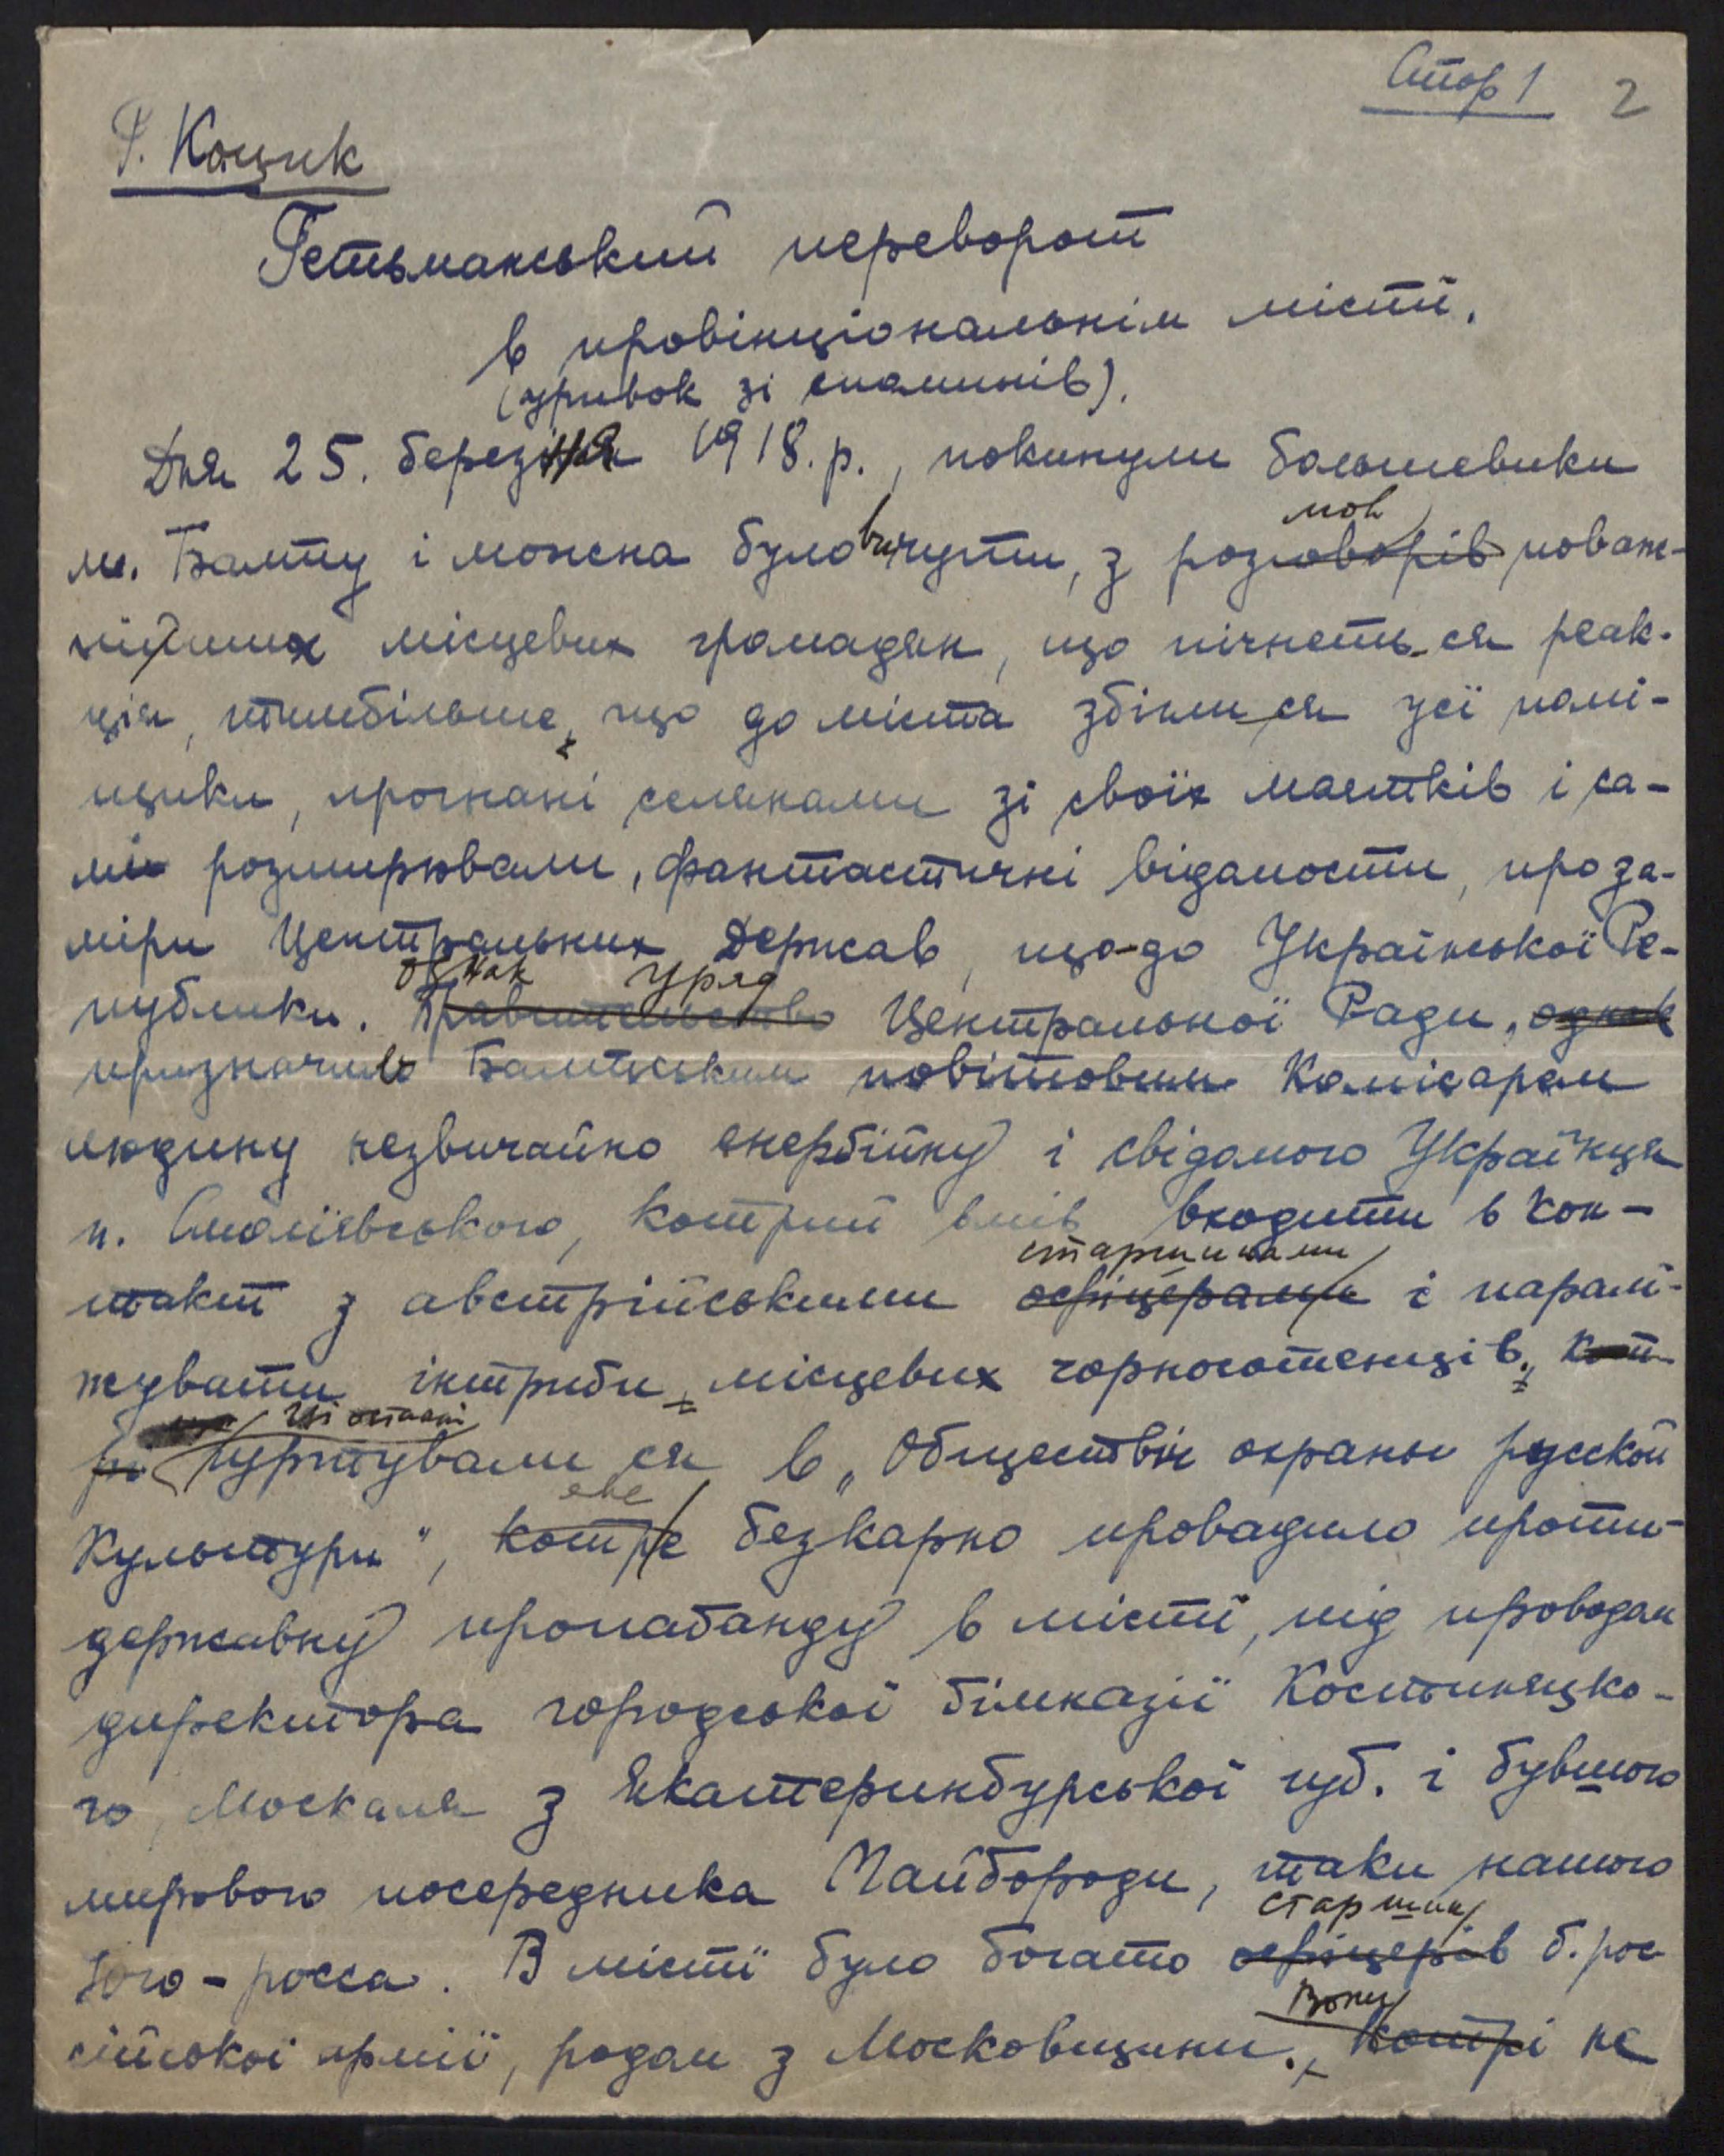 Стор 1 2
Ф. Кацик
Гетьманський переворот
в провінціональнім місті.
(уривок зі споминів).
Дня 25. березня 1918.р., покинули большевики
м. Балту і можна було вичути, з розмов поваж-
нійших місцевих громадян, що пічнеть-ся реак-
ція, тимбільше, що до міста збігли ся усі помі-
щики, прогнані селянами зі своїх маєтків і са-
мі розширювали, фантастичні відомости, про за-
міри Центральних Держав, що-до Української Ре-
публики. Однак Уряд Центральної Ради,
призначив Балтським повітовим Комісаром
людину незвичайно енерґійну і свідомого Українця
п. Смоліївського, котрий вмів входити в кон-
такт з австрійськими старшинами і паралі-
жувати інтриґи місцевих чорносотенців.
Ці останні гуртували ся в „Обществѣ охраны русской
культуры", яке безкарно провадило проти-
державну пропаґанду в місті, під проводом
директора городської ґімназії Костиняцко-
го, Москаля з Екатеринбурської губ. і бувшого
мирового посередника Майбороди, таки нашого
Юго-росса. В місті було богато старшин б. рос
сійської армії, родом з Московщини. Вони не